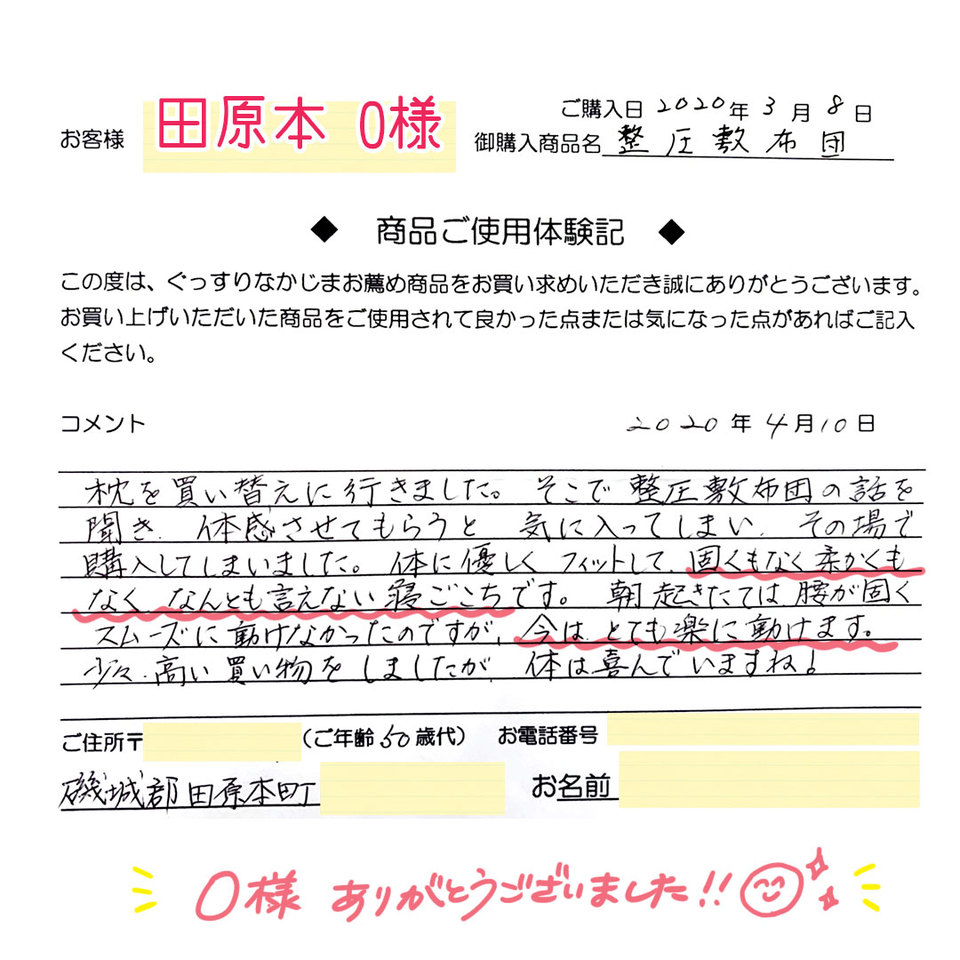 お客様 田原本 O様
ご購入日 2020年3月8日
御購入商品名 整圧敷布団
◆ 商品ご使用体験記 ◆
この度は、ぐっすりなかじまお薦め商品をお買い求めいただき誠にありがとうございます。
お買い上げいただいた商品をご使用されて良かった点または気になった点があればご記入
ください。
コメント 2020年4月10日
枕を買い替えに行きました。そこで整圧敷布団の話を
聞き、体感させてもらうと 気に入ってしまい、その場で
購入してしまいました。体に優しくフィットして、固くもなく柔かくも
なく、なんとも言えない寝ごこちです。朝起きたては腰が固く
スムーズに動けなかったのですが、今はとても楽に動けます。
少々、高い買い物をしましたが、体は喜んでいますね!
ご住所〒 (ご年齢50歳代) お電話番号
磯城郡田原本町 お名前
O様 ありがとうございました!!